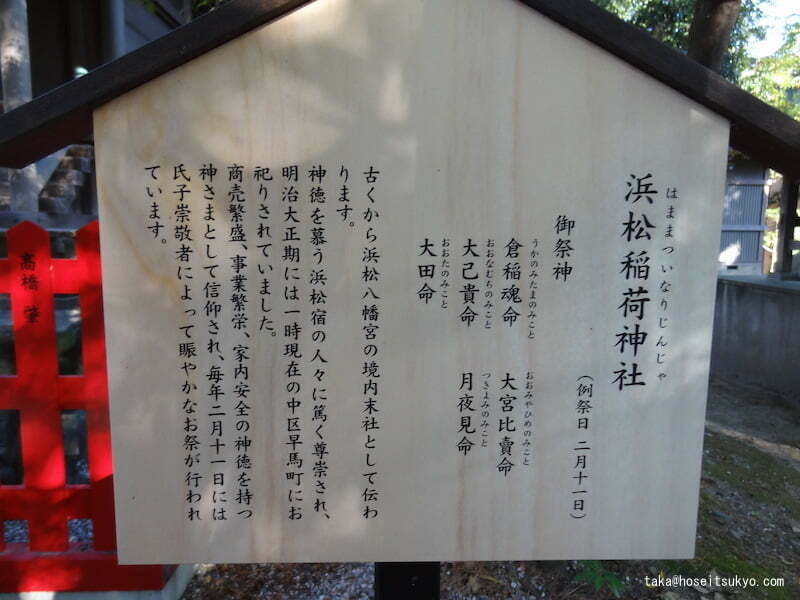 はままついなりじんじゃ
浜松稲荷神社
（例祭日 二月十一日）
御祭神
うかのみたまのみこと
倉稲魂命
おおみやひめのみこと
大宮比賣命
おおなむちのみこと
大己貴命
つきよみのみこと
月夜見命
おおたのみこと
大田命
古くから浜松八幡宮の境内末社として伝わ
ります。
神徳を慕う浜松宿の人々に篤く尊崇され、
明治大正期には一時現在の中区早馬町にお
祀りされていました。
商売繁盛、事業繁栄、家内安全の神徳を持つ
神さまとして信仰され、毎年二月十一日には
氏子崇敬者によって賑やかなお祭が行われ
ています。
高橋 肇
taka@hoseitsukyo.com